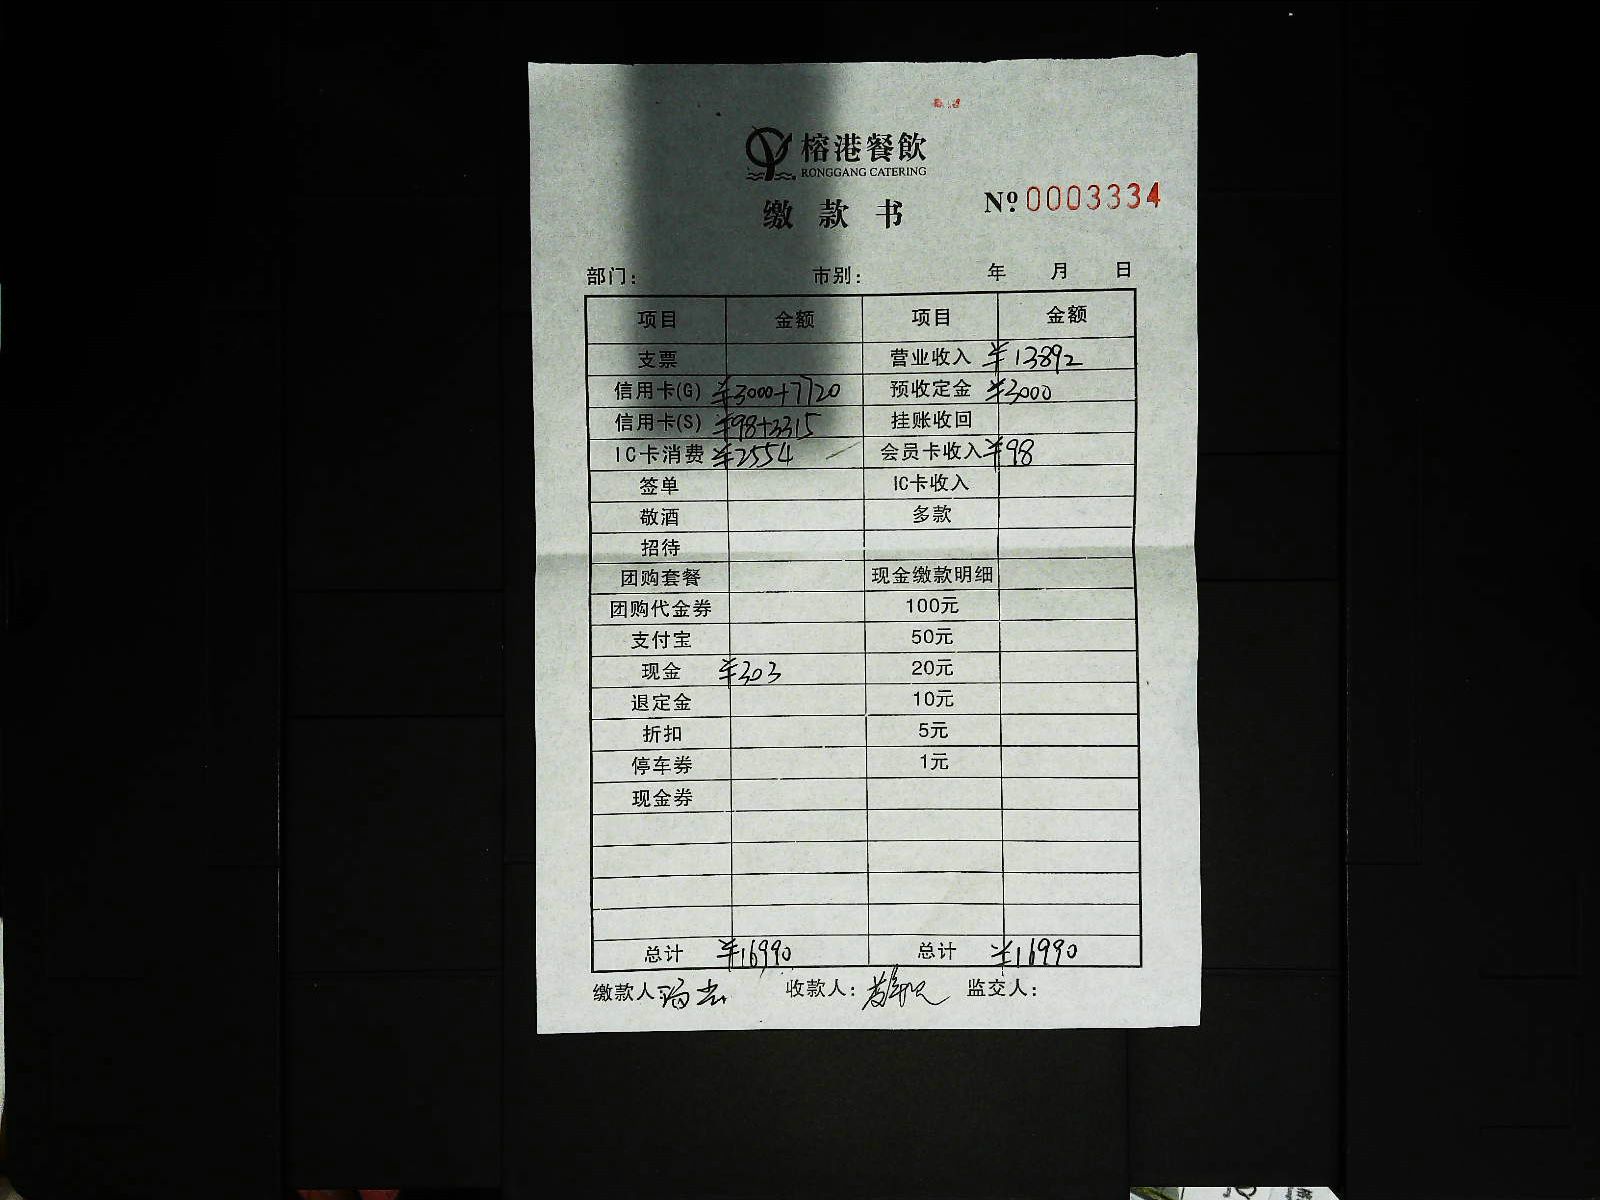 榕港餐飲
RONGGANG CATERING
缴款书
Nº 0003334
部门： 市别： 年 月 日
项目 金额 项目 金额
支票 营业收入 ¥13892
信用卡(G) ¥3000+7720 预收定金 ¥3000
信用卡(S) ¥98+3315 挂账收回
IC卡消费 ¥2554 会员卡收入 ¥98
签单 IC卡收入
敬酒 多款
招待
团购套餐 现金缴款明细
团购代金券 100元
支付宝 50元
现金 ¥303 20元
退定金 10元
折扣 5元
停车券 1元
现金券
总计 ¥16990 总计 ¥16990
缴款人 收款人： 监交人：